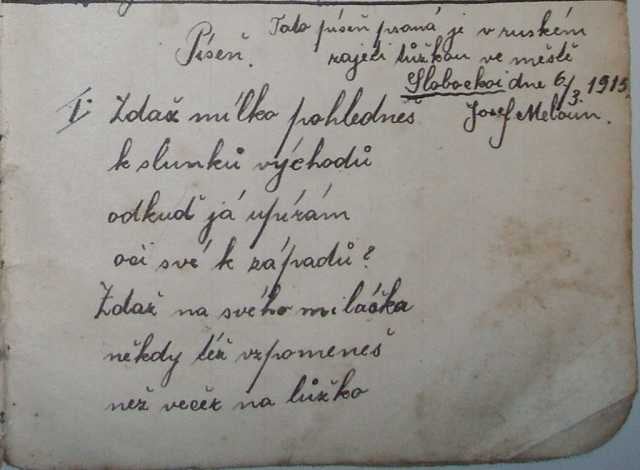 Píseň.
Tato píseň psaná je v ruském
zajetí tůžkou ve městě
Slobockoi dne 6/3. 1915.
Josef Meloun.
I. Zdaž mílko pohledneš
k slunků východů
odkuď já upírám
oči své k západů?
Zdaž na svého miláčka
někdy též vzpomeneš
než večer na lůžko